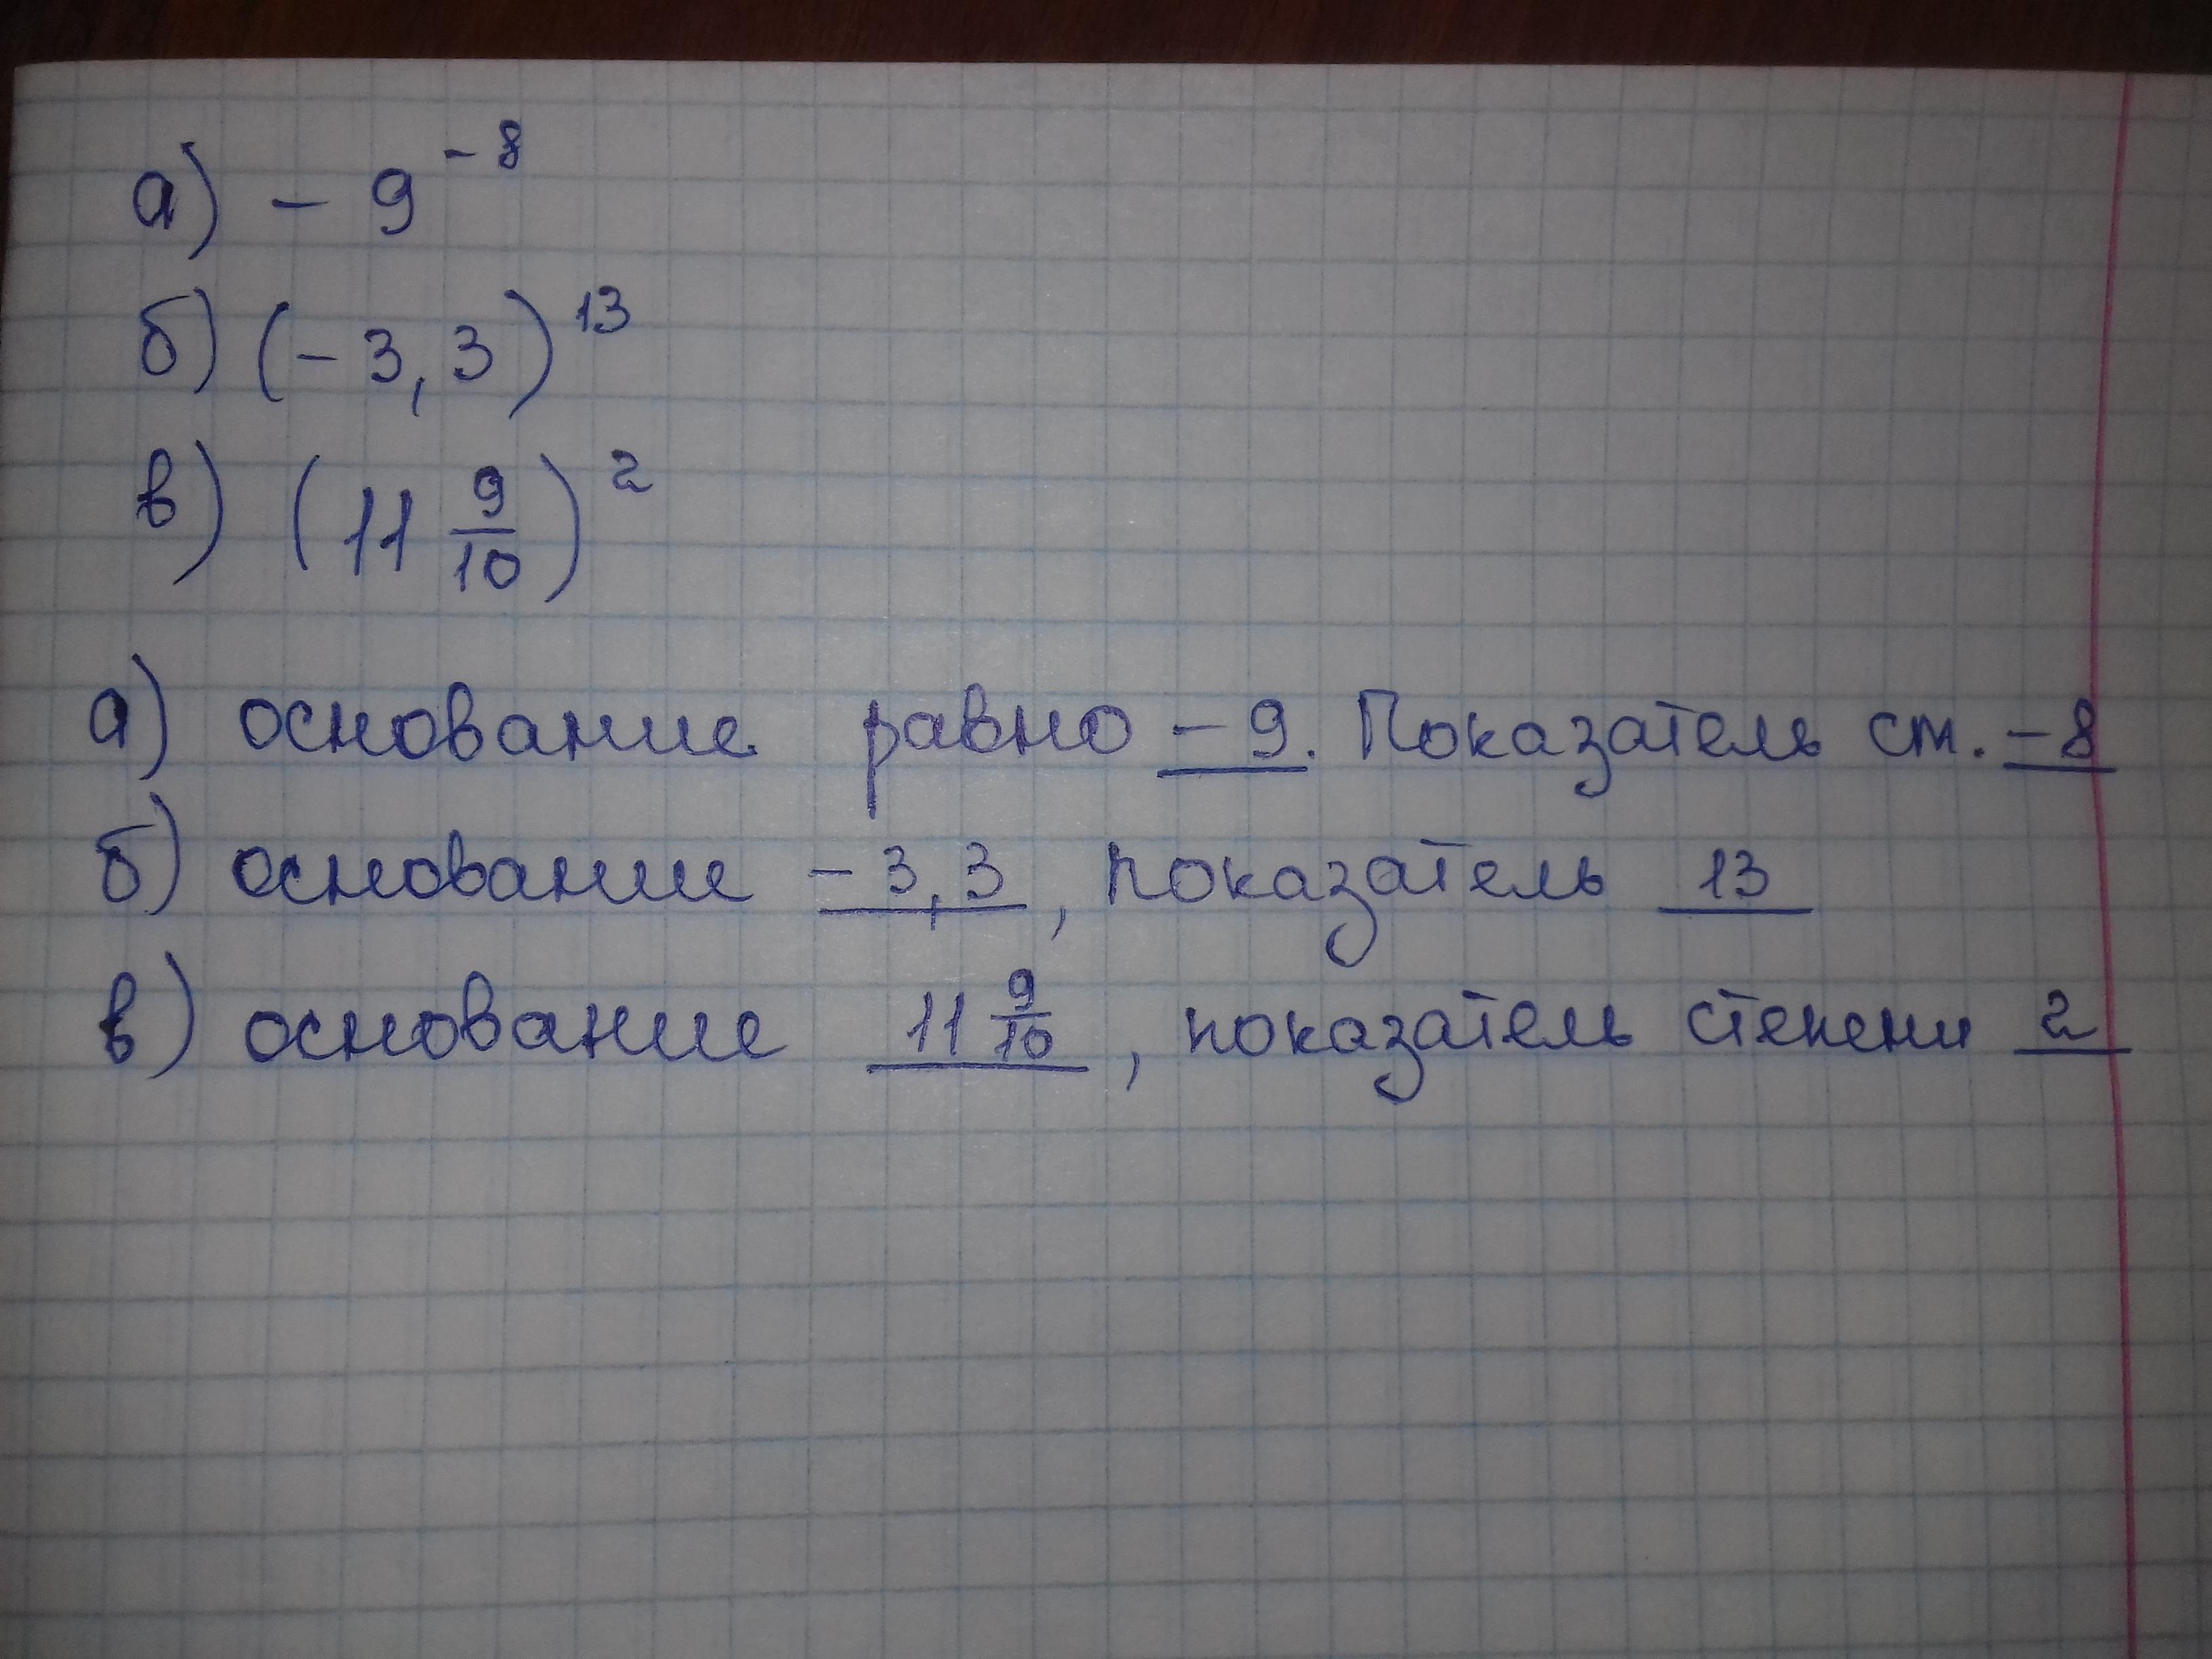 а) - 9^-8
б) (- 3,3)^13
в) (11 9/10)^2
а) основание равно - 9. Показатель ст. -8
б) основание - 3,3, показатель 13
в) основание 11 9/10, показатель степени 2